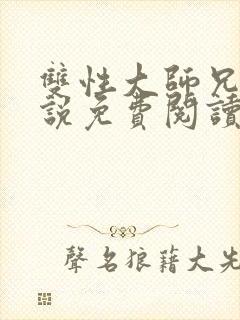 雙性大師兄
說免費閱讀
聲名狼藉大先